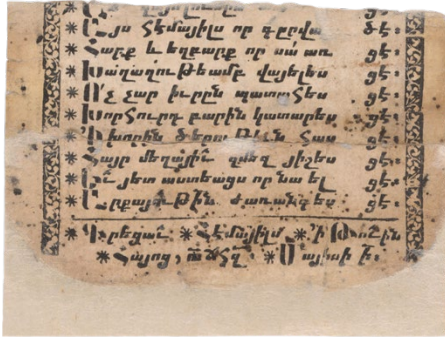 * Այս Հէմայիլս որ գըրվա ծե։
* Հարք և եղբարք որ սմ առ ցէ։
* Խաղաղութեամբ վայելես ցէ։
* Ո՛չ չար իւրըն պատահես ցէ։
* Խորհուրդ բարին կատարես ցէ։
* Ի խորին ծերութիւն հաս ցէ։
* Հայր մեղային զմեզ յիշես ցէ։
յետ աստեացս որ նա ել ցէ։
* Արքայութին ժառանգես ցէ։
* Գրեցաւ * Հէմայիլս * ՚ի Թուին
* Հայոց, * Մայիսի ի։